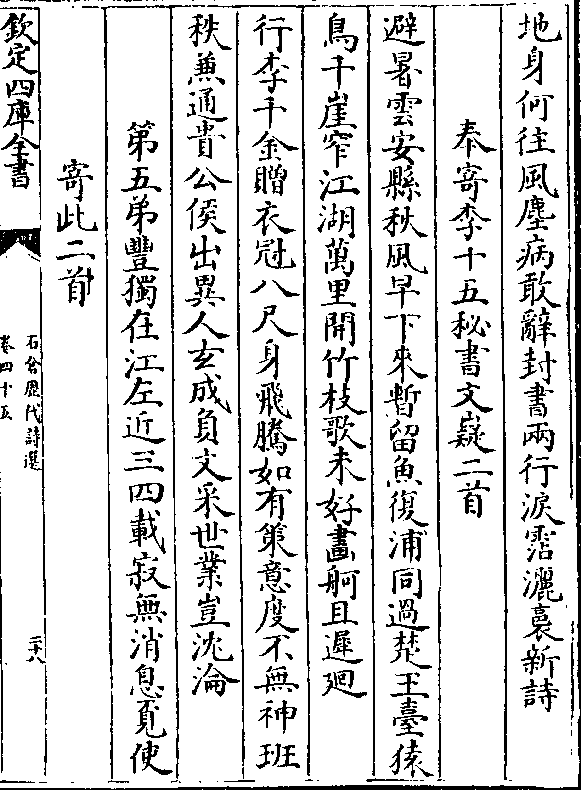 地身何往風塵病敢辭封書兩行淚霑灑裛新詩
奉寄李十五秘書文嶷二首
避暑雲安縣秋風早下來暫留魚復浦同過楚王臺猿
鳥千崖窄江湖萬里開竹枝歌未好畫舸且遲廻
行李千金贈衣冠八尺身飛騰如有策意度不無神班
秩兼通貴公侯出異人玄成負文采世業豈沈淪
第五弟豐獨在江左近三四載寂無消息覓使
寄此二首
欽定四庫全書
石倉歷代詩選
卷四十五
二十八